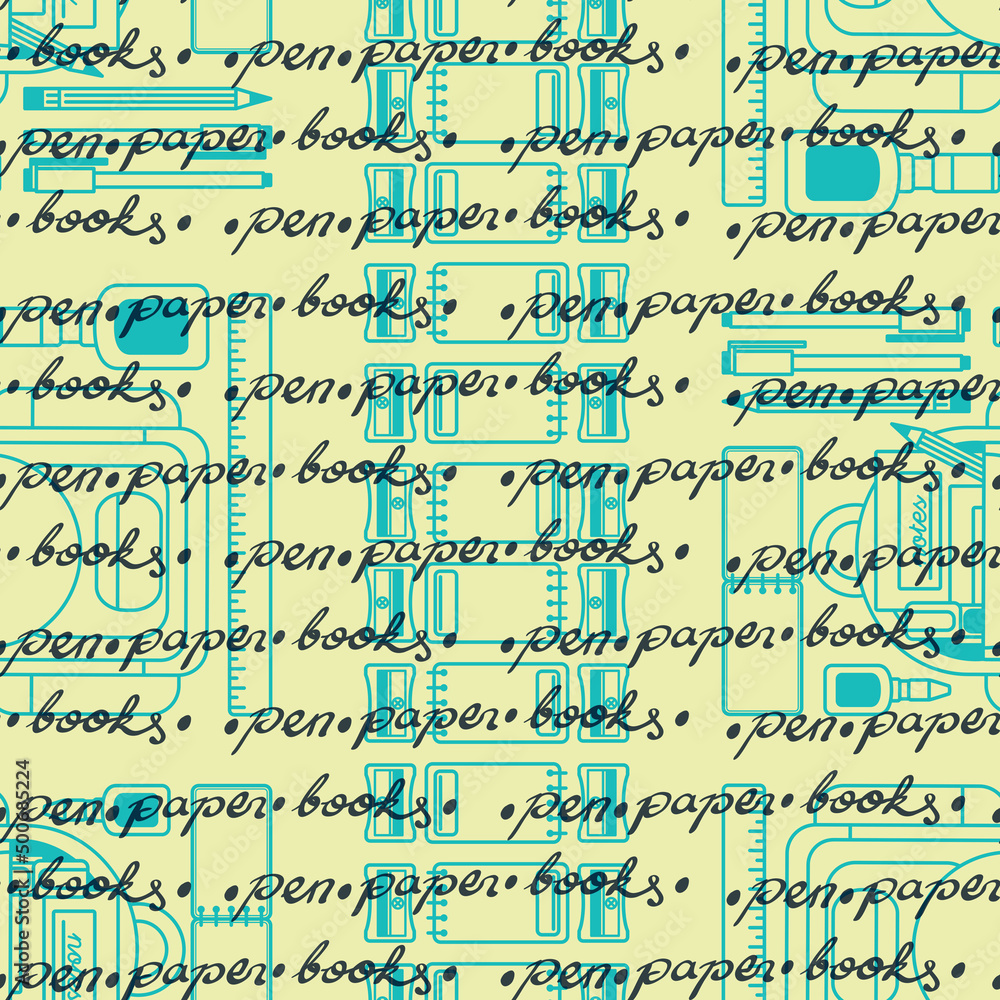 • books • • pen • paper • books • • pen • paper
pen • paper • books • • pen • paper • books •
• books • • pen • paper • books • • pen • paper
pen • paper • books • • pen • paper • books •
• books • • pen • paper • books • • pen • paper
pen • paper • books • • pen • paper • books •
notes
• books • • pen • paper • books • • pen • paper
pen • paper • books • • pen • paper • books •
• books • • pen • paper • books • • pen • paper
pen • paper • books • • pen • paper • books •
• books • • pen • paper • books • • pen • paper
pen • paper • books • • pen • paper • books •
Adobe Stock | #500685224